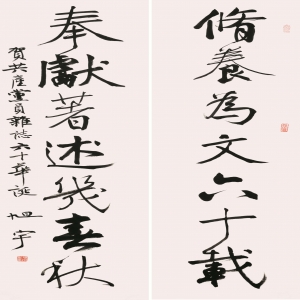 脩養為文六十載
奉獻著述幾春秋
賀共産黨員雜誌六十華誕
旭宇